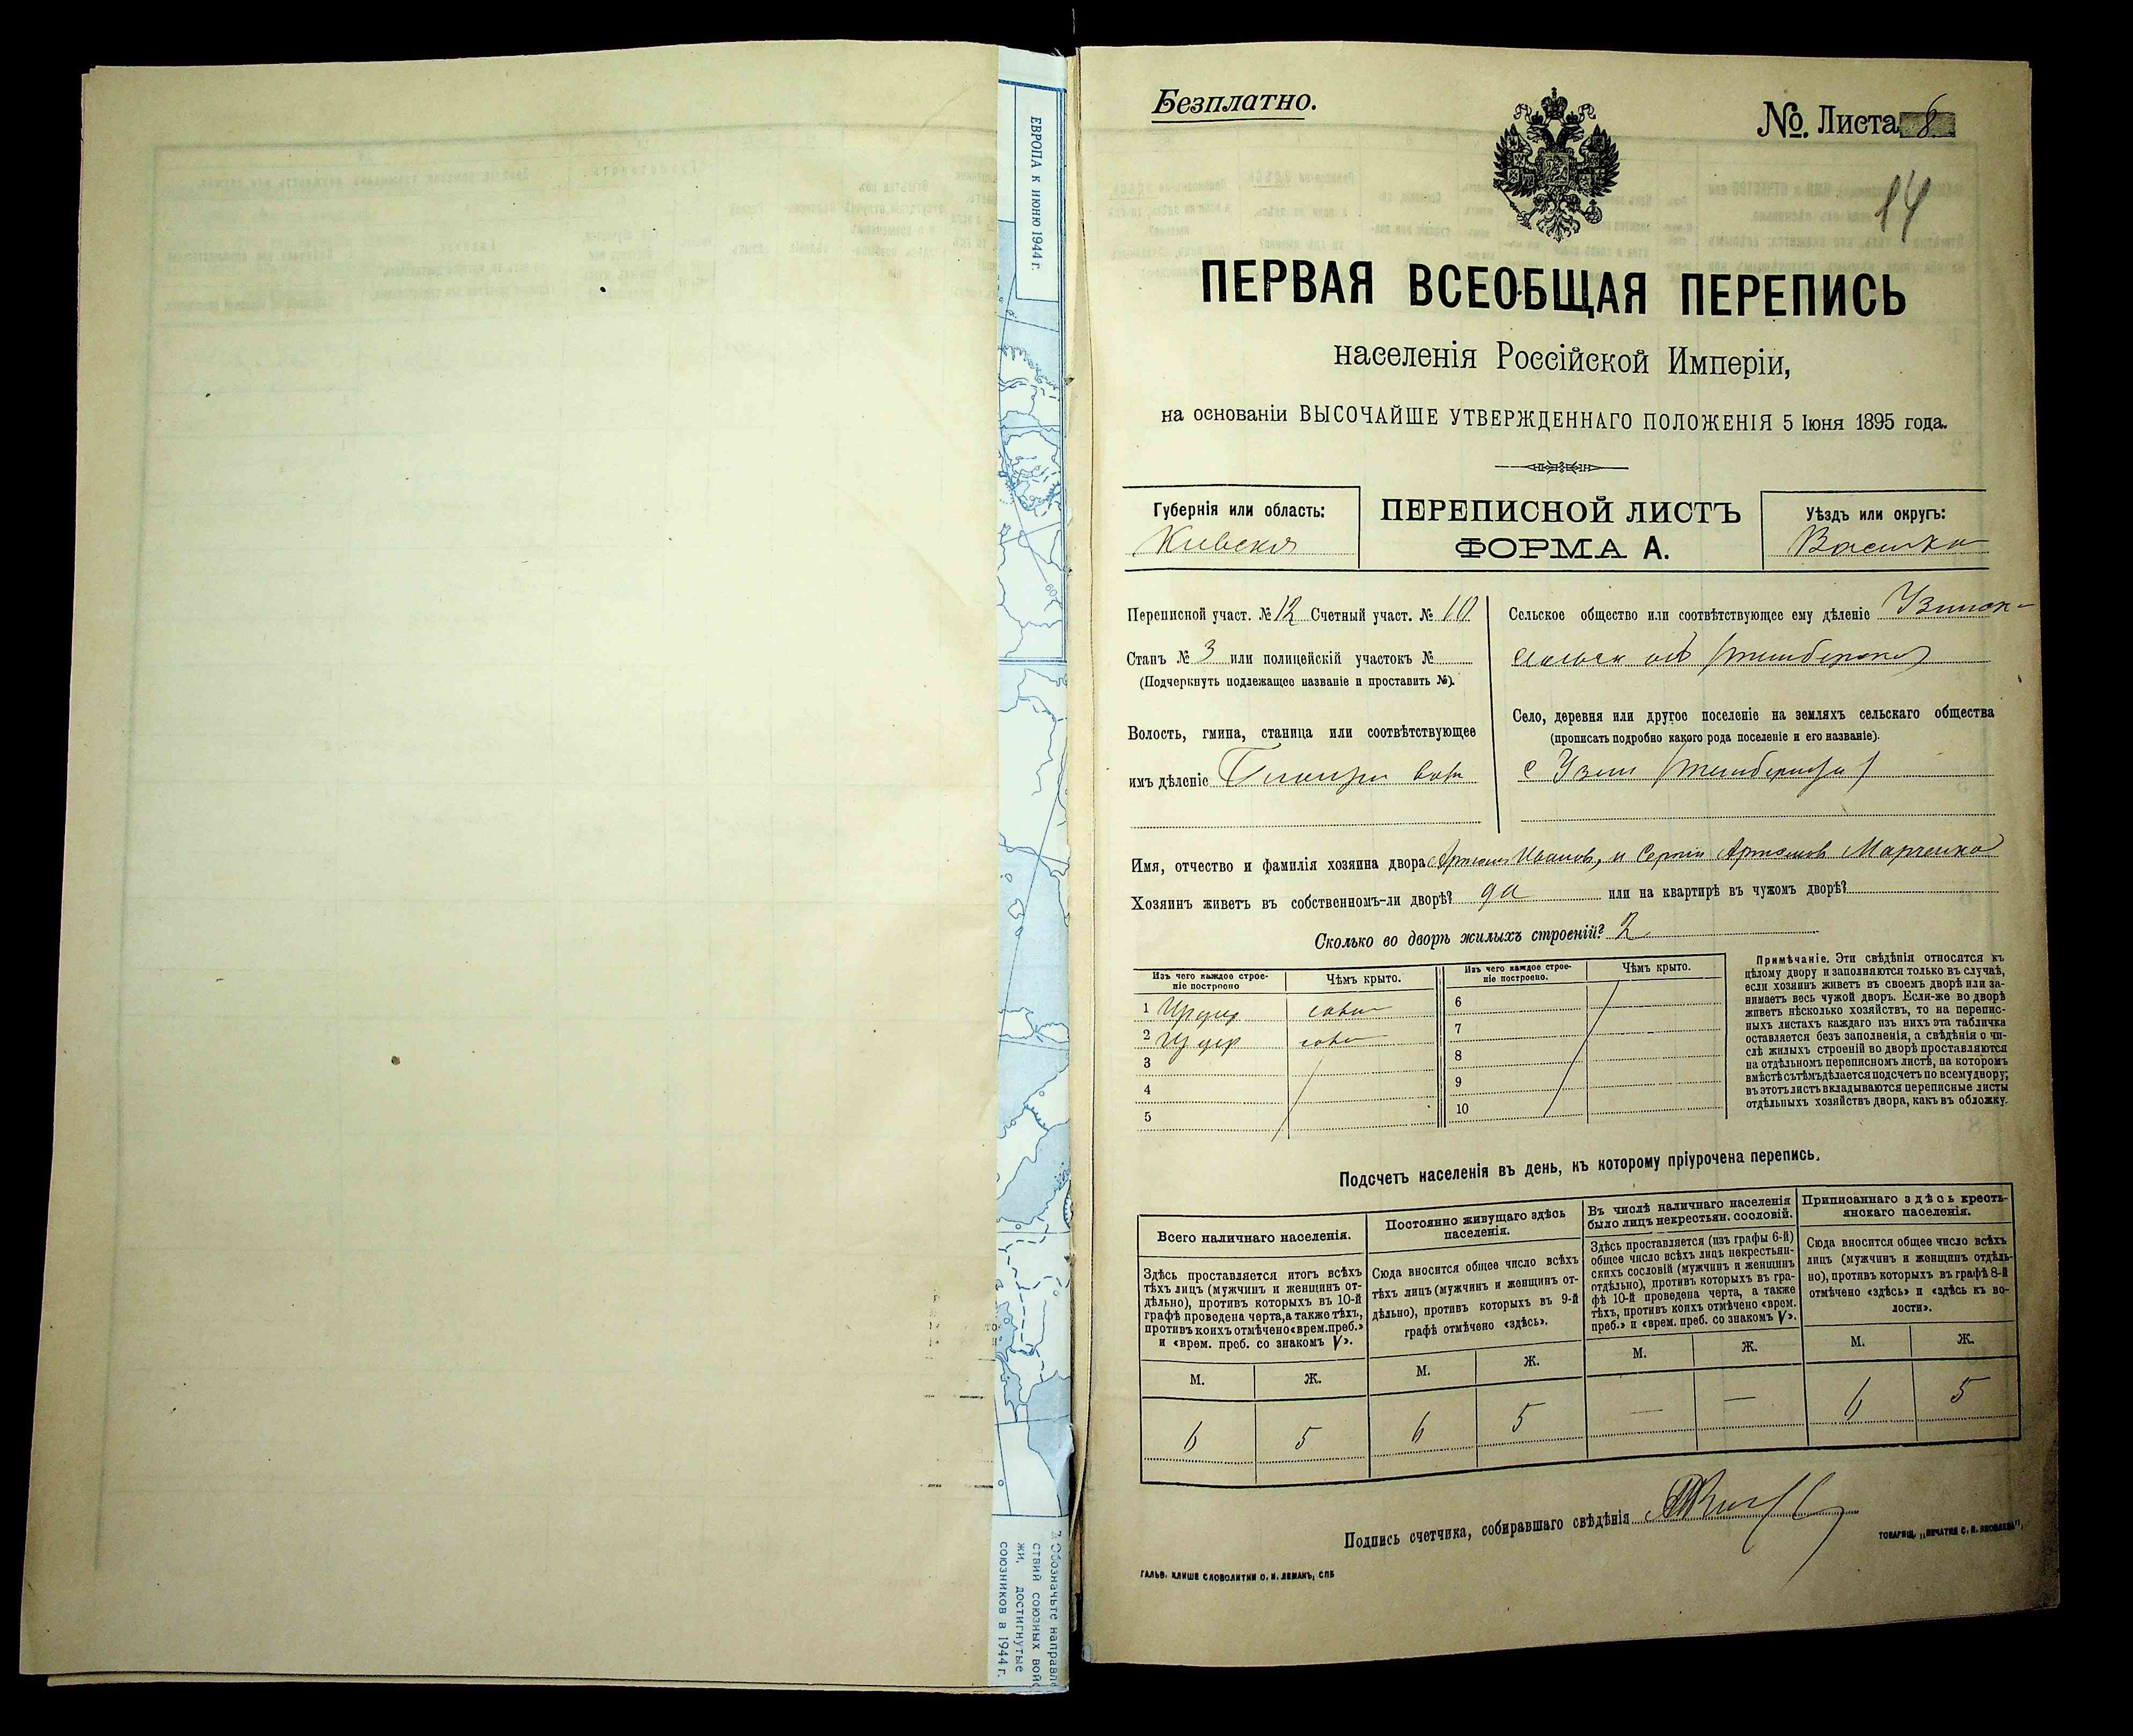 ЕВРОПА к июню 1944 г.
60
2. Обозначьте направл
ствий союзных войс
жи, достигнутые
союзников в 1944 г.
Безплатно.
№. Листа 8.
14
ПЕРВАЯ ВСЕОБЩАЯ ПЕРЕПИСЬ
населенія Россійской Имперіи,
на основаніи ВЫСОЧАЙШЕ УТВЕРЖДЕННАГО ПОЛОЖЕНІЯ 5 Іюня 1895 года.
Губернія или область:
Кіевская
ПЕРЕПИСНОЙ ЛИСТЪ
ФОРМА А.
Уѣздъ или округъ:
Переписной участ. № 12 Счетный участ. № 10
Станъ № 3 или полицейскій участокъ №
(Подчеркнуть подлежащее названіе и проставить №).
Волость, гмина, станица или соотвѣтствующее
имъ дѣленіе
Сельское общество или соотвѣтствующее ему дѣленіе
Село, деревня или другое поселеніе на земляхъ сельскаго общества
(прописать подробно какого рода поселеніе и его названіе).
с Узин
Имя, отчество и фамилія хозяина двора Артемъ Иванов, и Сергій Артемов Марченко
Хозяинъ живетъ въ собственномъ-ли дворѣ? да или на квартирѣ въ чужомъ дворѣ?
Сколько во дворѣ жилыхъ строеній? 2
Изъ чего каждое строе-
ніе построено
Чѣмъ крыто.
Изъ чего каждое строе-
ніе построено.
Чѣмъ крыто.
1
2
3
4
5
6
7
8
9
10
Примѣчаніе. Эти свѣдѣнія относятся къ
цѣлому двору и заполняются только въ случаѣ,
если хозяинъ живетъ въ своемъ дворѣ или за-
нимаетъ весь чужой дворъ. Если-же во дворѣ
живетъ нѣсколько хозяйствъ, то на перепис-
ныхъ листахъ каждаго изъ нихъ эта табличка
оставляется безъ заполненія, а свѣдѣнія о чи-
слѣ жилыхъ строеній во дворѣ проставляются
на отдѣльномъ переписномъ листѣ, на которомъ
вмѣстѣ съ тѣмъ дѣлается подсчетъ по всему двору;
въ этотъ листъ вкладываются переписные листы
отдѣльныхъ хозяйствъ двора, какъ въ обложку.
Подсчетъ населенія въ день, къ которому пріурочена перепись.
Всего наличнаго населенія.
Здѣсь проставляется итогъ всѣхъ
тѣхъ лицъ (мужчинъ и женщинъ от-
дѣльно), противъ которыхъ въ 10-й
графѣ проведена черта, а также тѣхъ,
противъ коихъ отмѣчено «врем. преб.»
и «врем. преб. со знакомъ V».
М. Ж.
6 5
Постоянно живущаго здѣсь
населенія.
Сюда вносится общее число всѣхъ
тѣхъ лицъ (мужчинъ и женщинъ от-
дѣльно), противъ которыхъ въ 9-й
графѣ отмѣчено «здѣсь».
М. Ж.
6 5
Въ числѣ наличнаго населенія
было лицъ некрестьян. сословій.
Здѣсь проставляется (изъ графы 6-й)
общее число всѣхъ лицъ некрестьян-
скихъ сословій (мужчинъ и женщинъ
отдѣльно), противъ которыхъ въ гра-
фѣ 10-й проведена черта, а также
тѣхъ, противъ коихъ отмѣчено «врем.
преб.» и «врем. преб. со знакомъ V».
М. Ж.
— —
Приписаннаго здѣсь кресть-
янскаго населенія.
Сюда вносится общее число всѣхъ
лицъ (мужчинъ и женщинъ отдѣль-
но), противъ которыхъ въ графѣ 8-й
отмѣчено «здѣсь» и «здѣсь къ во-
лости».
М. Ж.
6 5
Подпись счетчика, собиравшаго свѣдѣнія
ГАЛЬВ. КЛИШЕ СЛОВОЛИТНИ О. И. ЛЕМАНЪ, СПБ
ТОВАРИЩ. „ПЕЧАТНЯ С. П. ЯКОВЛЕВА",